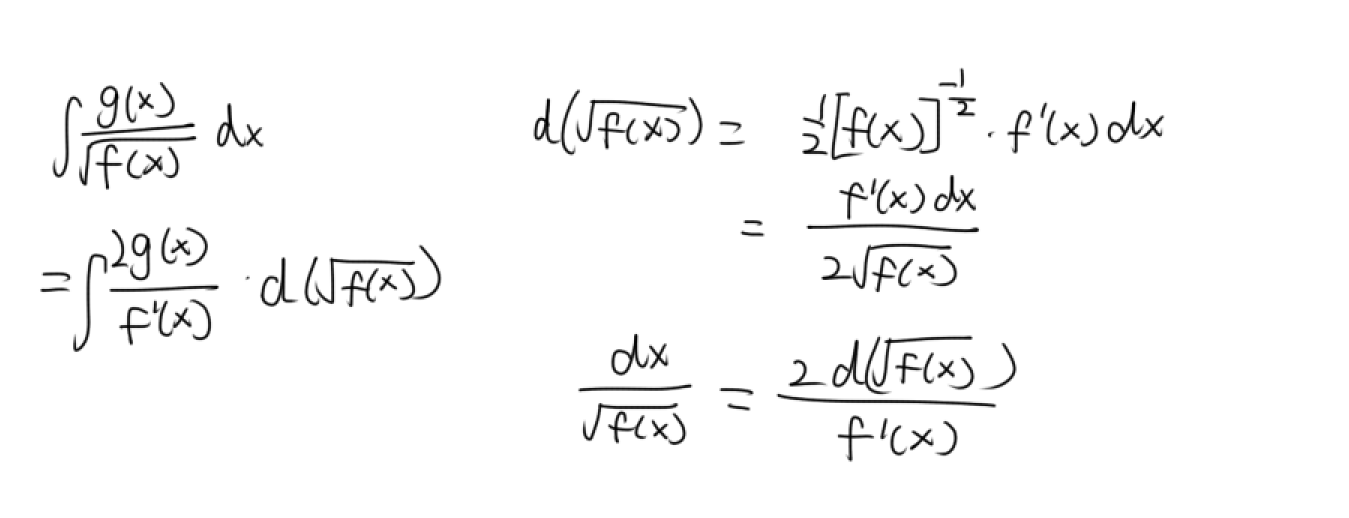 ∫ g(x)/√f(x) dx
= ∫ 2g(x)/f'(x) · d(√f(x))
d(√f(x)) = 1/2 [f(x)]^(-1/2) · f'(x) dx
= f'(x) dx / 2√f(x)
dx/√f(x) = 2 d(√f(x)) / f'(x)